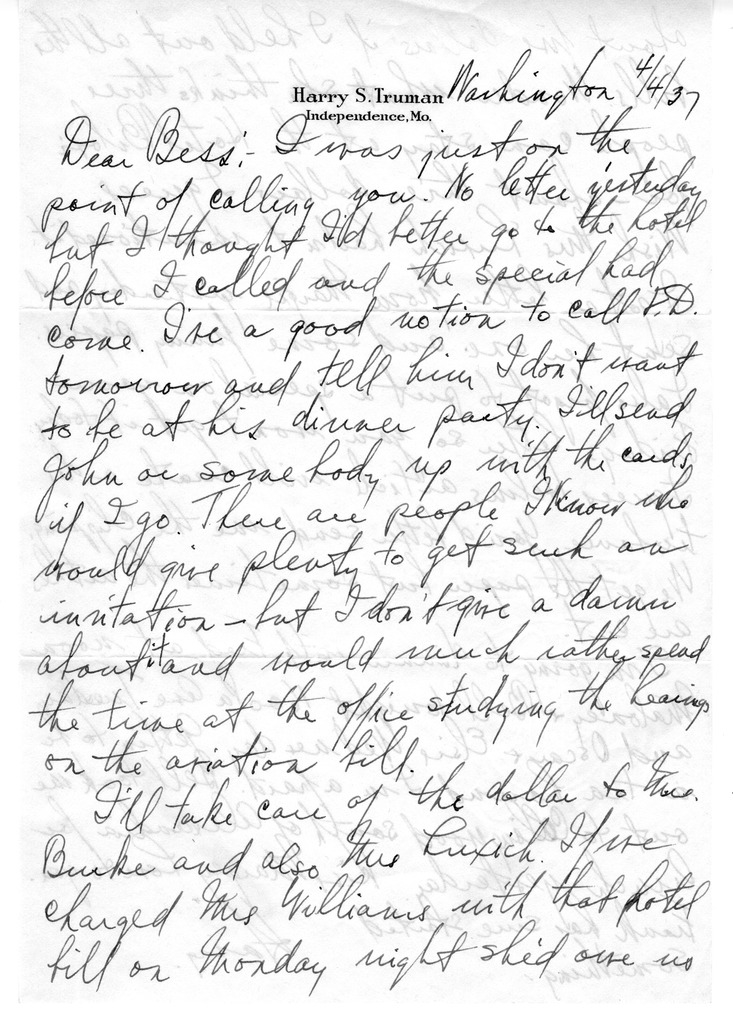 Harry S. Truman
Independence, Mo.
Washington 4/4/37
Dear Bess:- I was just on the
point of calling you. No letter yesterday
but I thought I'd better go to the hotel
before I called and the special had
come. I've a good notion to call P.D.
tomorrow and tell him I don't want
to be at his dinner party. I'll send
John or some body up with the cards
if I go. There are people I know who
would give plenty to get such an
invitation - but I don't give a damn
about it and would much rather spend
the time at the office studying the hearings
on the aviation bill.
I'll take care of the dollar to Mrs.
Burke and also Mrs. If we
charged Mrs Williams with that hotel
bill on Monday night she'd owe us